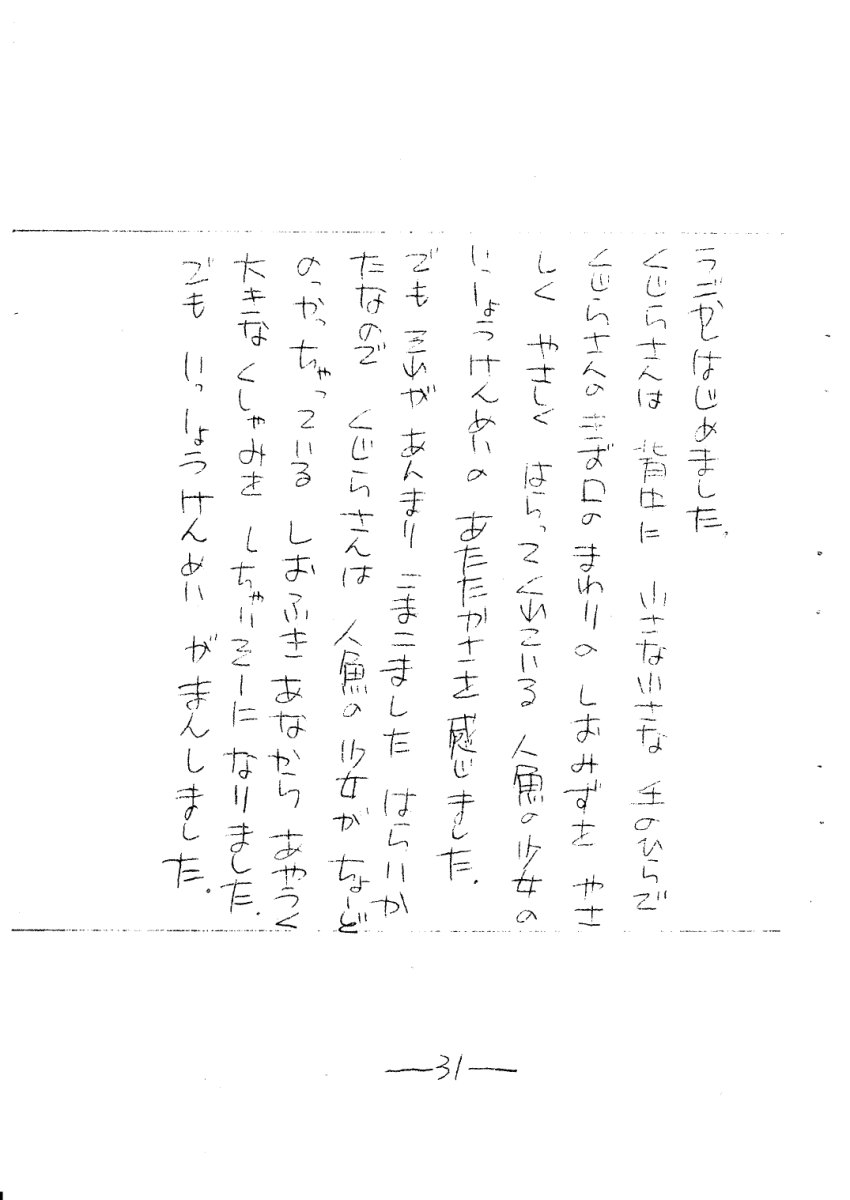 うごかしはじめました.
くじらさんは 背中に 小さな小さな 手のひらで
くじらさんのきず口のまわりの しおみずを やさ
しく やさしく はらってくれている 人魚の少女の
いっしょうけんめいの あたたかさを感じました.
でも 三山が あんまり こまこました はらいか
たなので くじらさんは 人魚の少女が ちょーど
のっかっちゃっている しおふきあなから あやうく
大きなくしゃみを しちゃいそーに なりました.
でも いっしょうけんめい がまんしました.
—31—